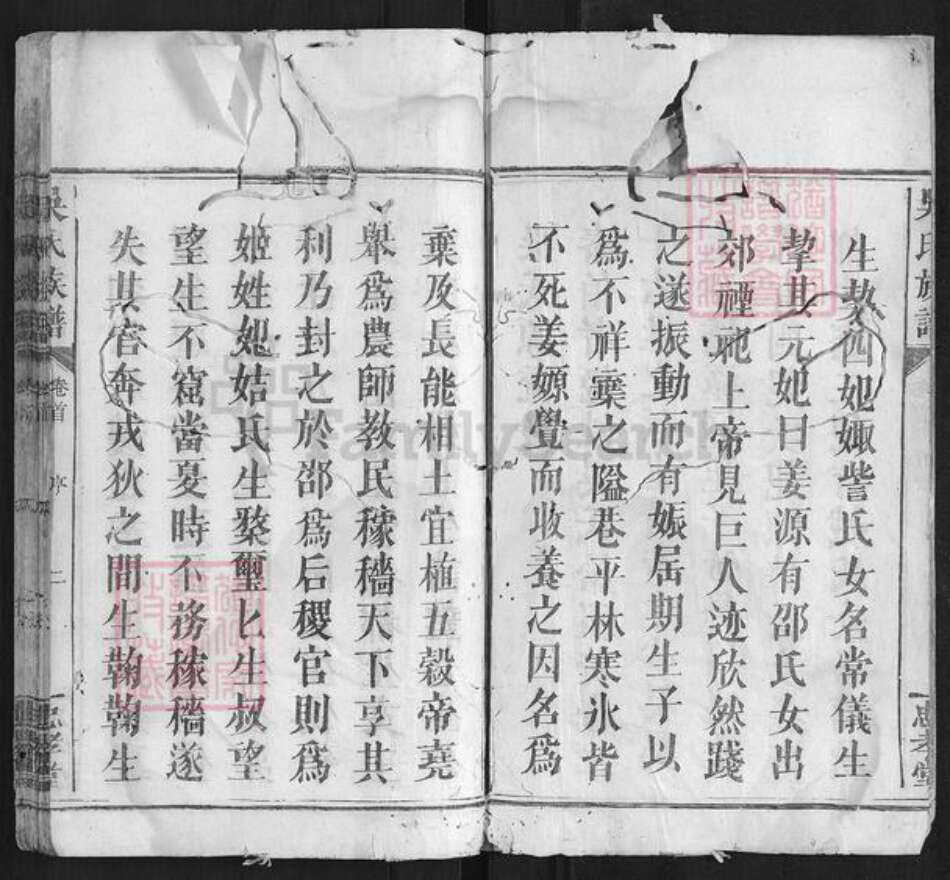 吳氏族譜
生摯四妃娵訾氏女名常儀生
摯其元妃曰姜源有邰氏女出
郊禋祀上帝見巨人迹欣然踐
之遂振動而有娠屆期生子以
為不祥棄之隘巷平林寒氷皆
不死姜嫄覺而收養之因名為
棄及長能相土宜植五穀帝堯
舉為農師教民稼穡天下享其
利乃封之於邰為后稷官則為
姬姓妃姞氏生漦璽匕生叔望
望生不窋當夏時不務稼穡遂
失其官奔戎狄之間生鞠鞠生
吳氏族譜
卷首
序
二
忠孝堂
忠孝堂
FamilySearch